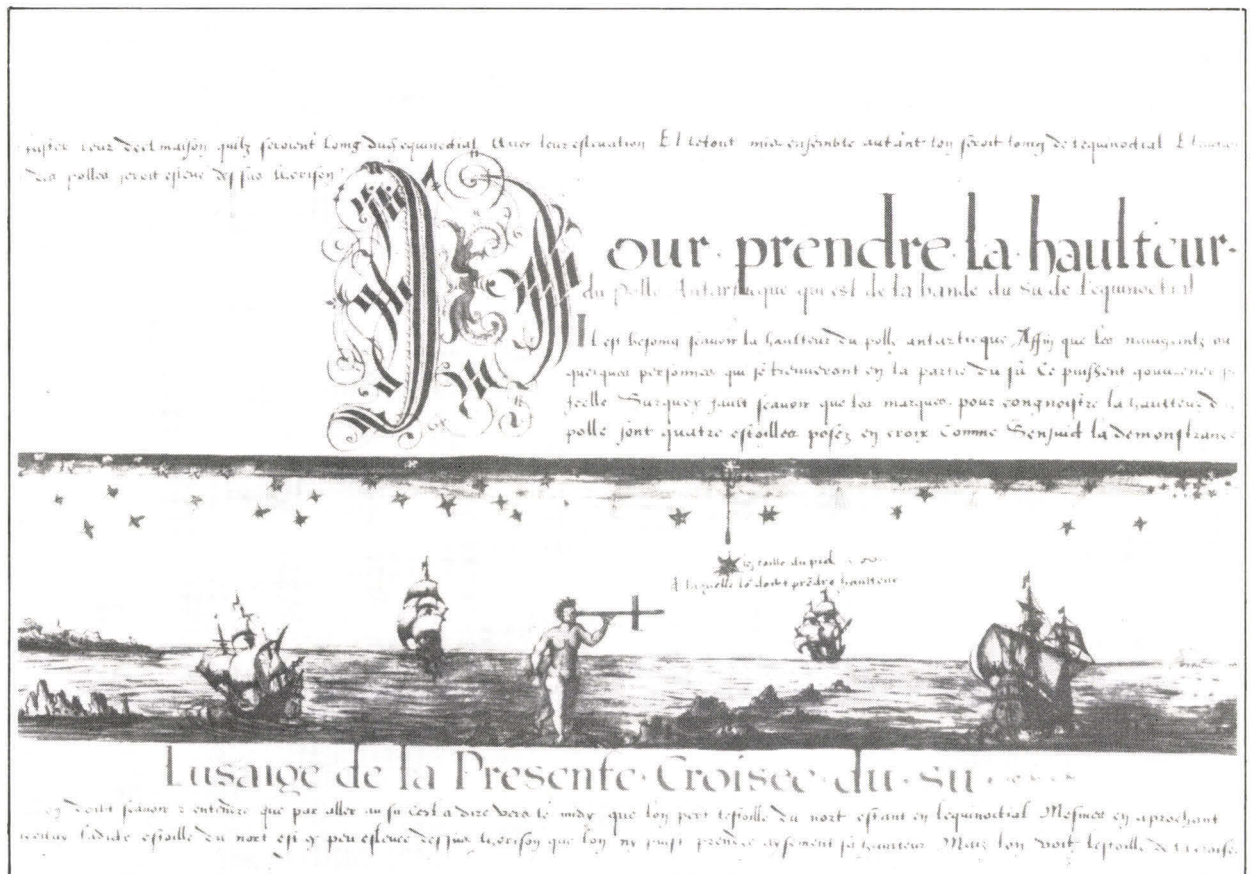 leur declinaison quilz seroient Long du equinoctial Avec leur eslevation Et letout mis ensemble autant lon seroit loing de lequinoctial Et
des polles seroit esleve dessus lorison
Pour · prendre · la · haulteur ·
du polle Antartique qui est de la bande du su de lequinoctial
Il est besoing scavoir la haulteur du polle antartique Affin que les navigantz ou
quelques personnes qui se trouveront en la partie du su Ce puissent gouverner
icelle Surquoy fault scavoir que les marques pour congnoistre la haulteur
polle sont quatre estoilles posez en croix Comme Sensuict la demonstrance
lestoille du pied
A laquelle lo doibt predre haulteur
Lusaige de la Presente · Croisee · du · su ·
doibt scavoir z entendre que par aller au su Cest a dire vers le midy que lon pert lestoille du nort estant en lequinoctial Mesmes en aprochant
ladicte estoille du nort est sy peu eslevee dessus lorison que lon ny puist prendre aysement sa haulteur Mais lon voit lestoille de la croisee